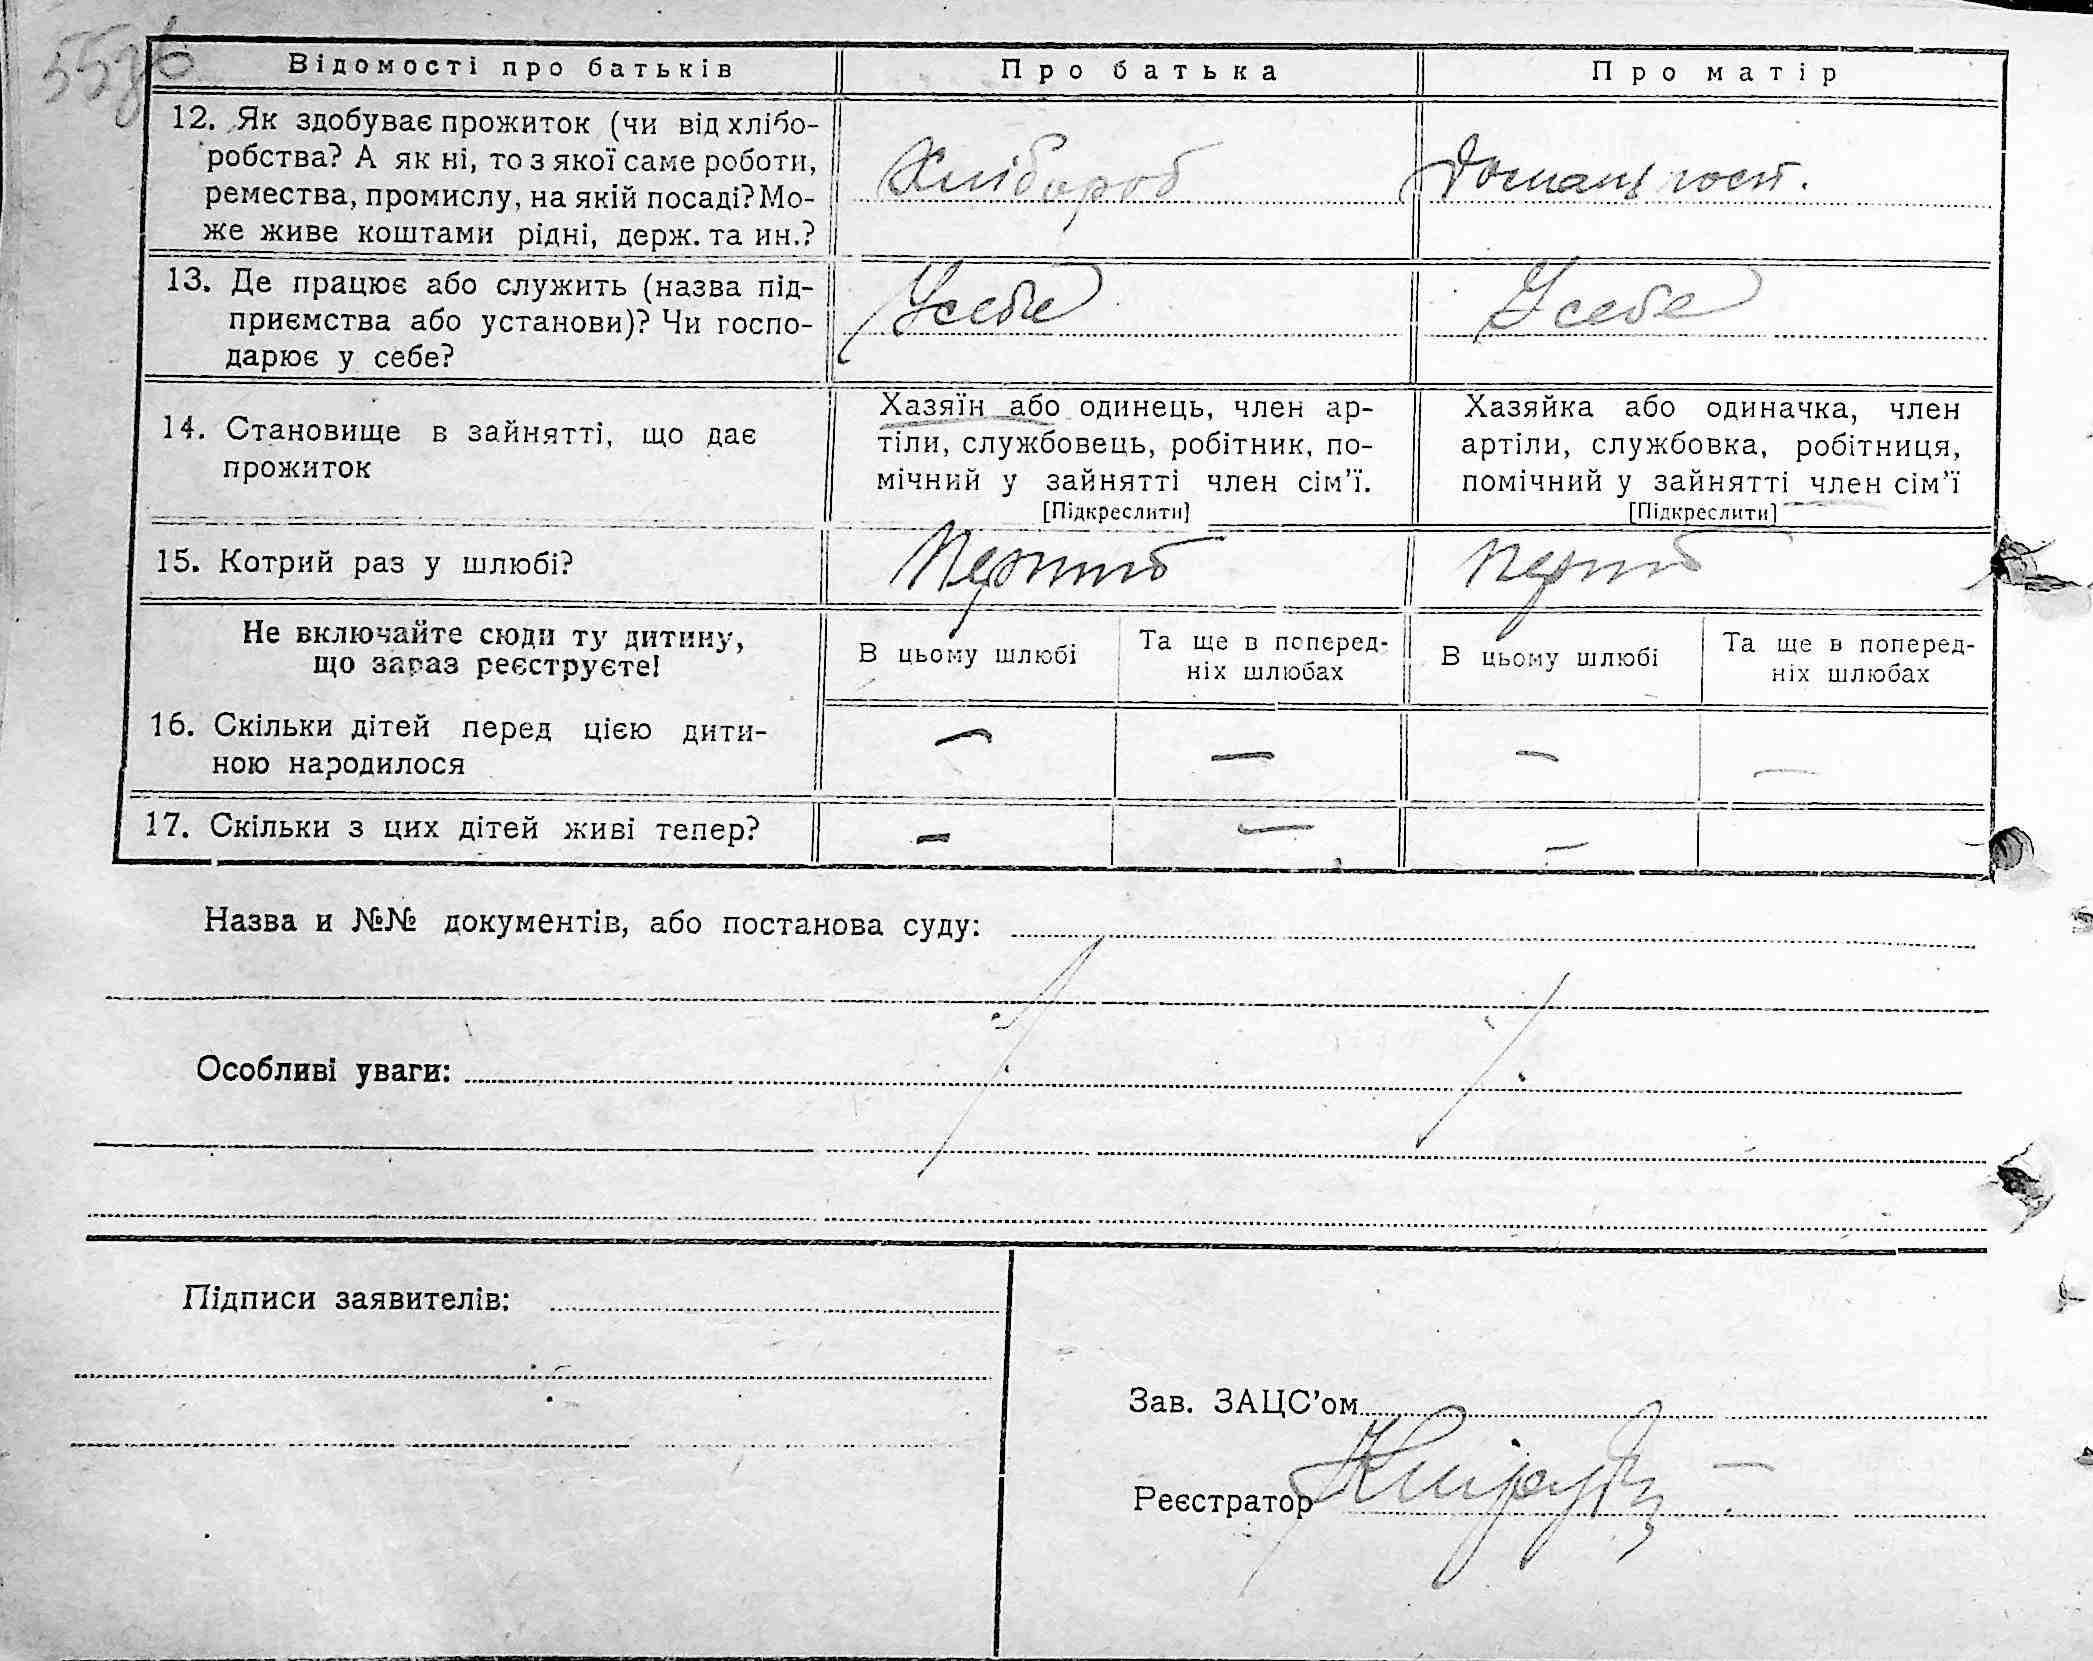 Відомості про батьків
Про батька
Про матір
12. Як здобуває прожиток (чи від хлібо-
робства? А як ні, то з якої саме роботи,
ремества, промислу, на якій посаді? Мо-
же живе коштами рідні, держ. та ин.?
Хлібороб
Домашь госп.
13. Де працює або служить (назва під-
приємства або установи)? Чи госпо-
дарює у себе?
У себе
У себе
14. Становище в зайнятті, що дає
прожиток
Хазяїн або одинець, член ар-
тіли, службовець, робітник, по-
мічний у зайнятті член сім'ї.
[Підкреслити]
Хазяйка або одиначка, член
артіли, службовка, робітниця,
помічний у зайнятті член сім'ї
[Підкреслити]
15. Котрий раз у шлюбі?
Не включайте сюди ту дитину,
що зараз реєструєте!
В цьому шлюбі
Та ще в поперед-
ніх шлюбах
В цьому шлюбі
Та ще в поперед-
ніх шлюбах
16. Скільки дітей перед цією дити-
ною народилося
— — — —
17. Скільки з цих дітей живі тепер?
— — —
Назва и №№ документів, або постанова суду:
Особливі уваги:
Підписи заявителів:
Зав. ЗАЦС'ом
Реєстратор